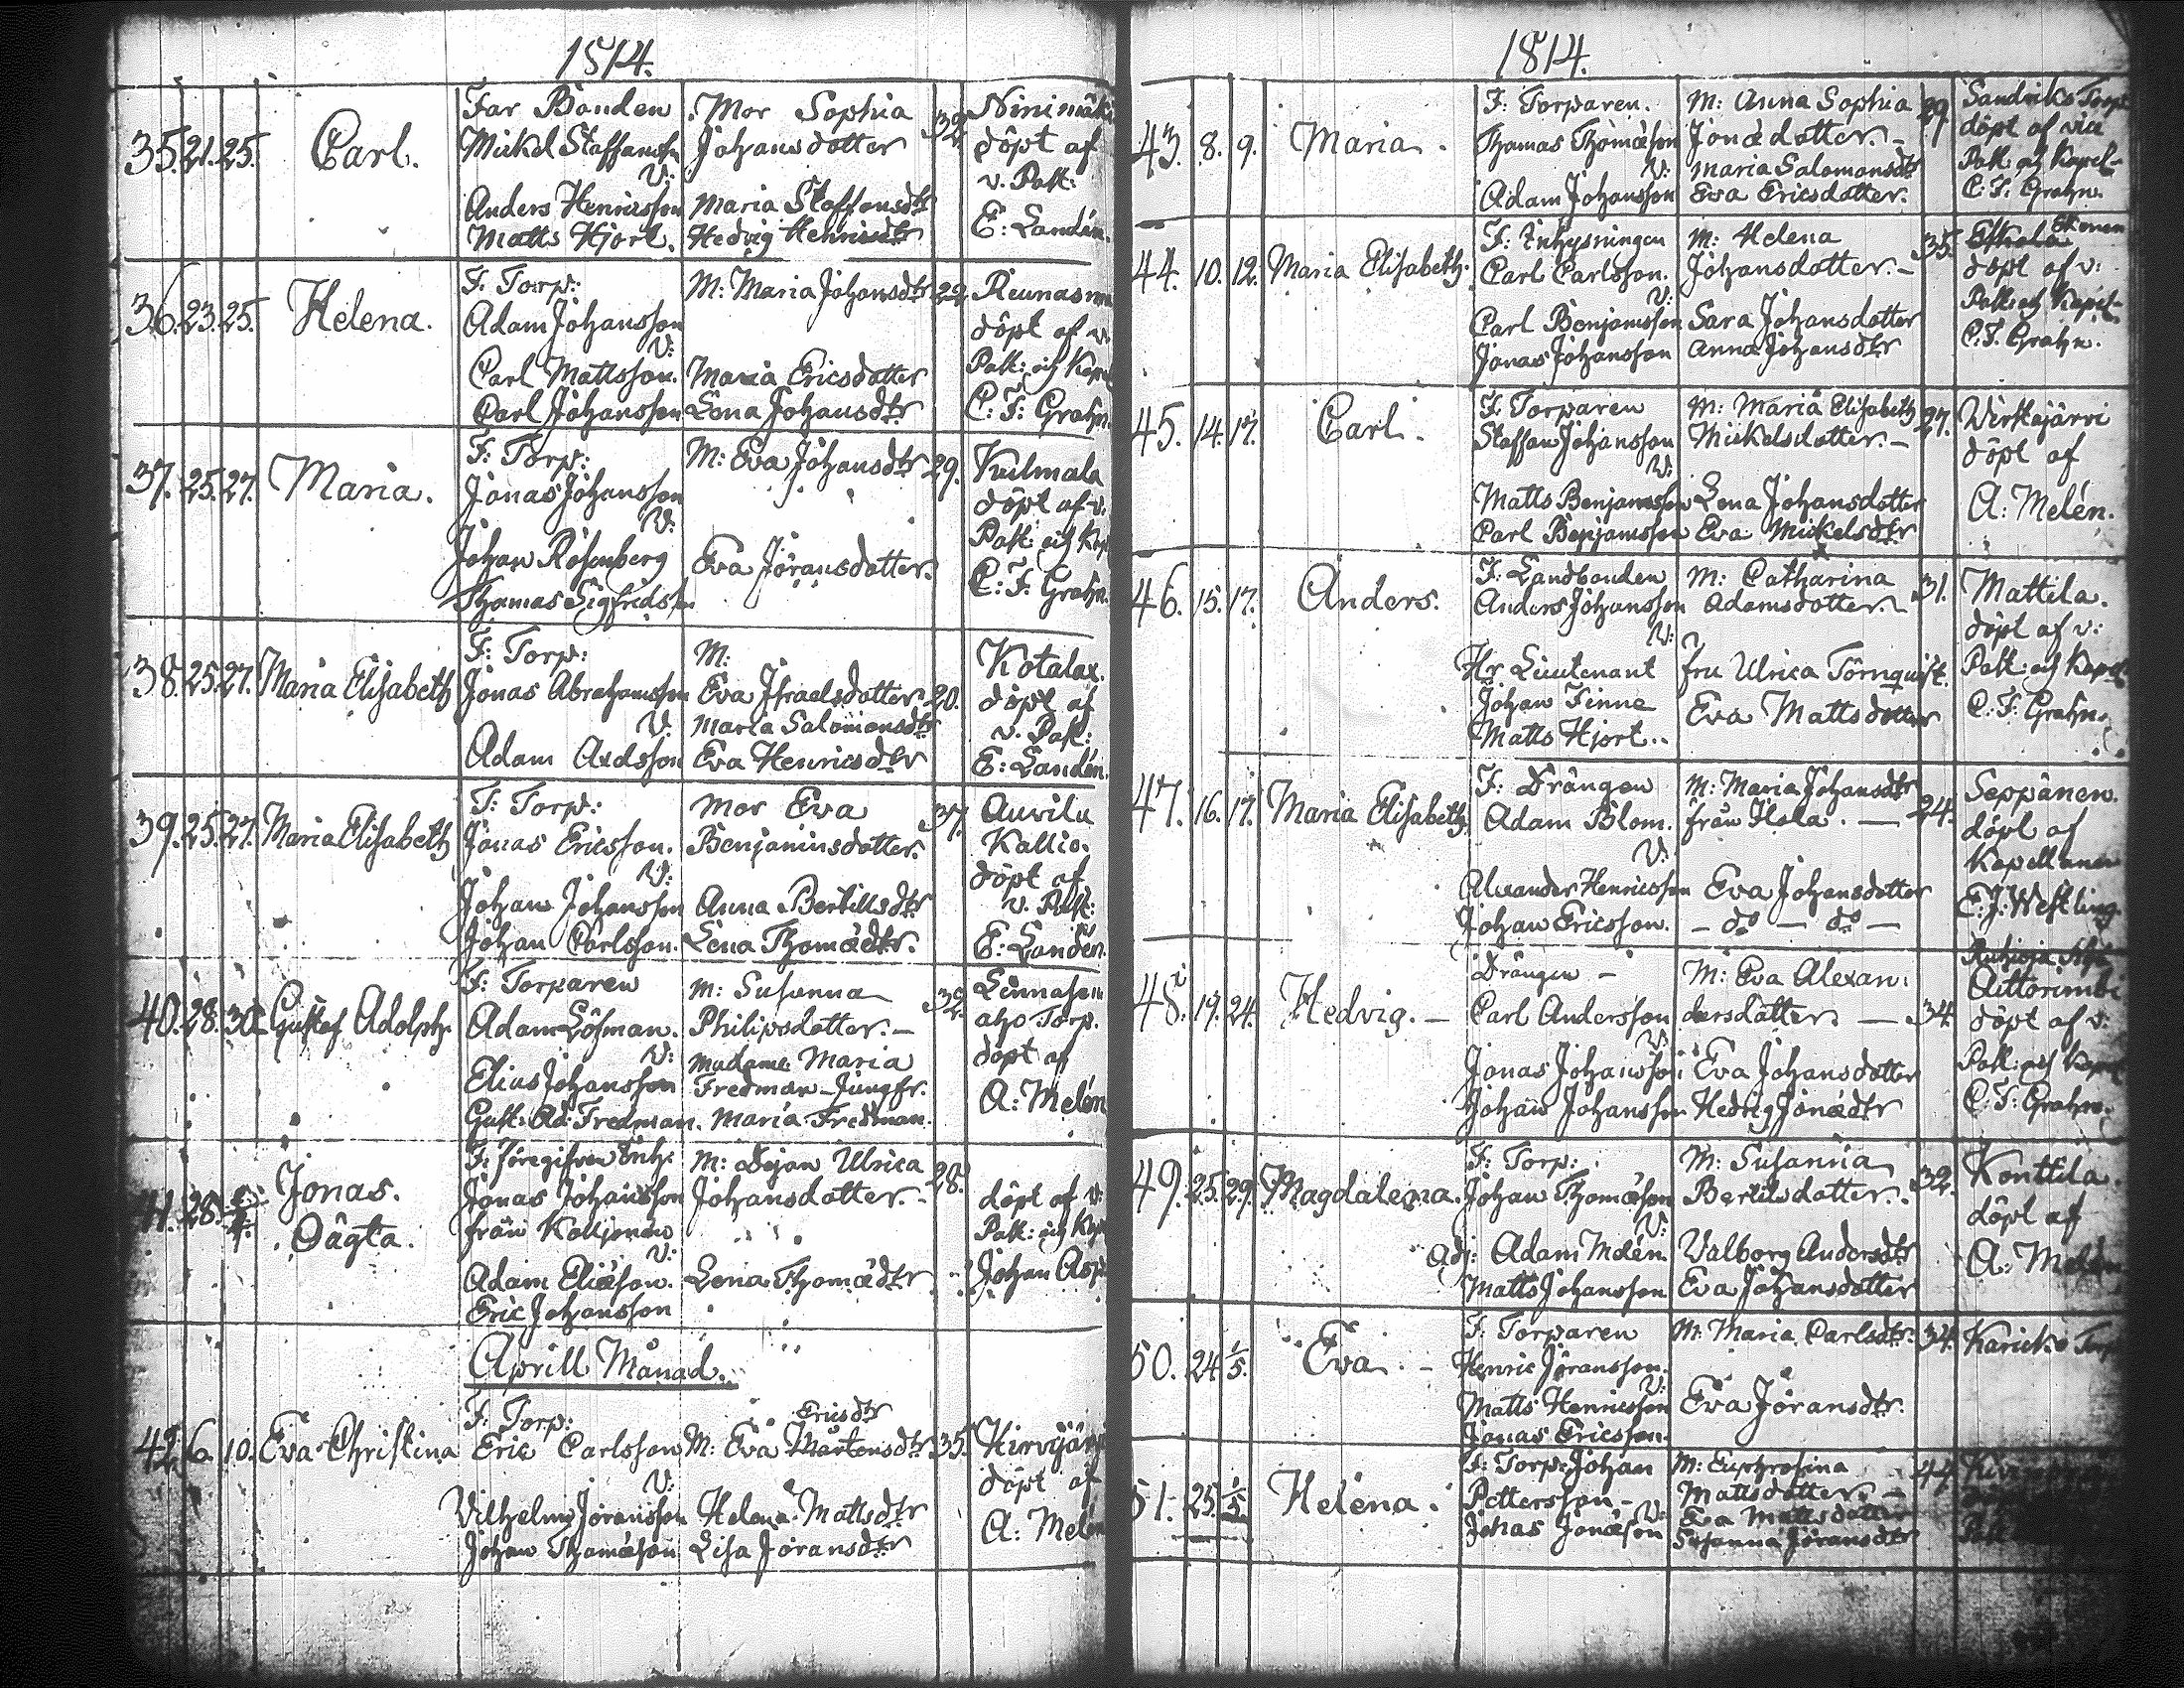 1814.
35. 21. 25. Carl. Far Bonden Mor Sophia 32
Mickel Staffansson Johansdotter
V:
Anders Henricsson Maria Staffansdtr
Matts Hjort. Hedvig Henricsdtr
Ninimäki
döpt af
v. Past:
E: Landén.
36. 23. 25. Helena. F. Torp: M: Maria Johansdtr 22
Adam Johansson
V:
Carl Mattsson. Maria Ericsdotter
Carl Johansson Lena Johansdtr
döpt af v.
Past: och Kapel
C: F: Grahn.
37. 25. 27. Maria. F: Torp: M: Eva Johansdtr 29.
Jonas Johansson
V:
Johan Rosenberg Eva Jöransdotter.
Thomas Sigfridsson
Kulmala
döpt af v:
Past: och Kap
C: F: Grahn.
38. 25. 27. Maria Elisabeth F: Torp: M:
Jonas Abrahamsson Eva Israelsdotter 20.
V: Maria Salomonsdtr
Adam Axelsson Eva Henricsdtr
Kotalax.
döpt af
v. Past:
E: Landén.
39. 25. 27. Maria Elisabeth F: Torp: Mor Eva 37.
Jonas Ericsson. Benjaminsdotter.
V:
Johan Johansson Anna Bertillsdtr
Johan Carlsson. Lena Thomædtr.
Auvila
Kallio.
döpt af
v. Past:
E: Landén.
40. 28. 30. Gustaf Adolph. F: Torparen M: Susanna 32.
Adam Löfman. Philipsdotter.
V: Madame Maria
Elias Johansson Fredman Jungfr.
Gust: Ad: Fredman. Maria Fredman.
aho Torp.
döpt af
A: Melén
41. 28. Jonas. M: Dejan Ulrica 28.
Oägta. Jonas Johansson Johansdotter.
från
V:
Adam Eliæson. Lena Thomædtr
Eric Johansson
döpt af v:
Past: och Kap
Johan Asp
Aprill Månad.
42. 6. 10. Eva Christina F. Torp: Ericsdtr
Eric Carlsson M: Eva Mårtensdtr 35.
V:
Vilhelm Jöransson Helena Mattsdtr
Johan Thomæson Lisa Jöransdtr
döpt af
A: Melén
1814.
43. 8. 9. Maria. F: Torparen. M: Anna Sophia 29.
Thomas Thomæson Jonædotter.
V: Maria Salomonsdtr
Adam Johansson Eva Ericsdotter.
Sandviks Torp
döpt af vice
Past: och Kapel
C: F: Grahn.
44. 10. 12. Maria Elisabeth. F: Inhysningen M: Helena 35.
Carl Carlsson. Johansdotter.
V:
Carl Benjamsson Sara Johansdotter
Jonas Johansson Anna Johansdtr
döpt af v:
Past: och Kapel
C: F. Grahn.
45. 14. 17. Carl. F: Torparen M: Maria Elisabeth 27.
Staffan Johansson Mickelsdotter.
V:
Matts Benjamsson Lena Johansdotter
Carl Benjamsson Eva Mickelsdtr
Virkajärvi
döpt af
A: Melén.
46. 15. 17. Anders. F: Landbonden M: Catharina 31.
Anders Johansson Adamsdotter.
V:
Hr. Lieutenant fru Ulrica Törnquist.
Johan Finne
Matts Hjort. Eva Mattsdotter
Mattila.
döpt af v:
Past: och Kapel
C: F: Grahn.
47. 16. 17. Maria Elisabeth. F: Drängen M: Maria Johansdtr 24.
Adam Blom. från Ilola.
V:
Alexander Henricsson Eva Johansdotter
Johan Ericsson. do do
Seppänen.
döpt af
Kapellanen
E: J: Westling.
48. 19. 24. Hedvig. Drängen M: Eva Alexan: 34.
Carl Andersson dersdotter.
V:
Jonas Johansson Eva Johansdotter
Johan Johansson Hedvig Jonædtr
döpt af v:
Past: och Kapel
C: F: Grahn.
49. 25. 29. Magdalena. F: Torp: M: Susanna 32.
Johan Thomæson Bertilsdotter.
V:
Adj: Adam Melén. Valborg Andersdtr
Matts Johansson Eva Johansdotter
Konttila.
döpt af
A: Melén
50. 24 1/5. Eva. F: Torparen M: Maria Carlsdtr. 34.
Henric Jöransson.
V:
Matts Henricsson Eva Jöransdtr.
Jonas Ericsson.
51. 25. 1/5 Helena. F: Torp: Johan M: Euphrosina 44.
Pettersson Mattsdotter.
V: Eva Mattsdotter
Jonas Jonæson Susanna Jöransdtr